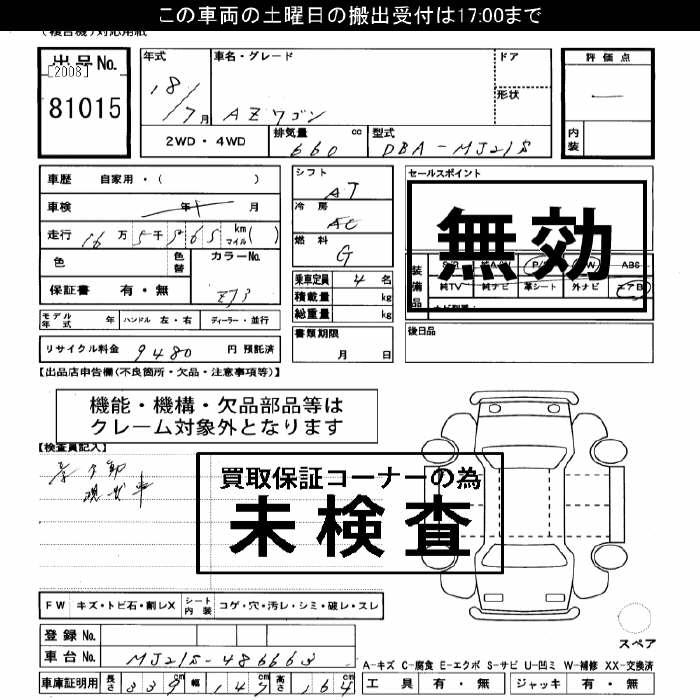 この車両の土曜日の搬出受付は17:00まで
(複合機)対応用紙
出品No.
[2008]
81015
年式
18/7月
車名・グレード
AZワゴン
ドア
形状
評価点
内装
2WD・4WD
排気量 660 cc
型式 DBA-MJ21S
車歴 自家用・( )
車検 年 月
走行 16万5千 km マイル( )
色
色替
カラーNo.
ZJ3
保証書 有・無
シフト AT
冷房 AC
燃料 G
乗車定員 4 名
積載量 kg
総重量 kg
セールスポイント
無効
装備品
ABS
純TV
純ナビ
革シート
外ナビ
エアB
後日品
モデル年式 年
ハンドル 左・右
ディーラー・並行
書類期限
月 日
リサイクル料金 9480 円 預託済
【出品店申告欄(不良箇所・欠品・注意事項等)】
機能・機構・欠品部品等は
クレーム対象外となります
【検査員記入】
買取保証コーナーの為
未検査
FW キズ・トビ石・割レX
シート内装 コゲ・穴・汚レ・シミ・破レ・スレ
登録No.
車台No. MJ21S-486663
車庫証明用 長さ 339 cm 幅 147 cm 高さ 164 cm
スペア
A-キズ C-腐食 E-エクボ S-サビ U-凹ミ W-補修 XX-交換済
工具 有・無
ジャッキ 有・無